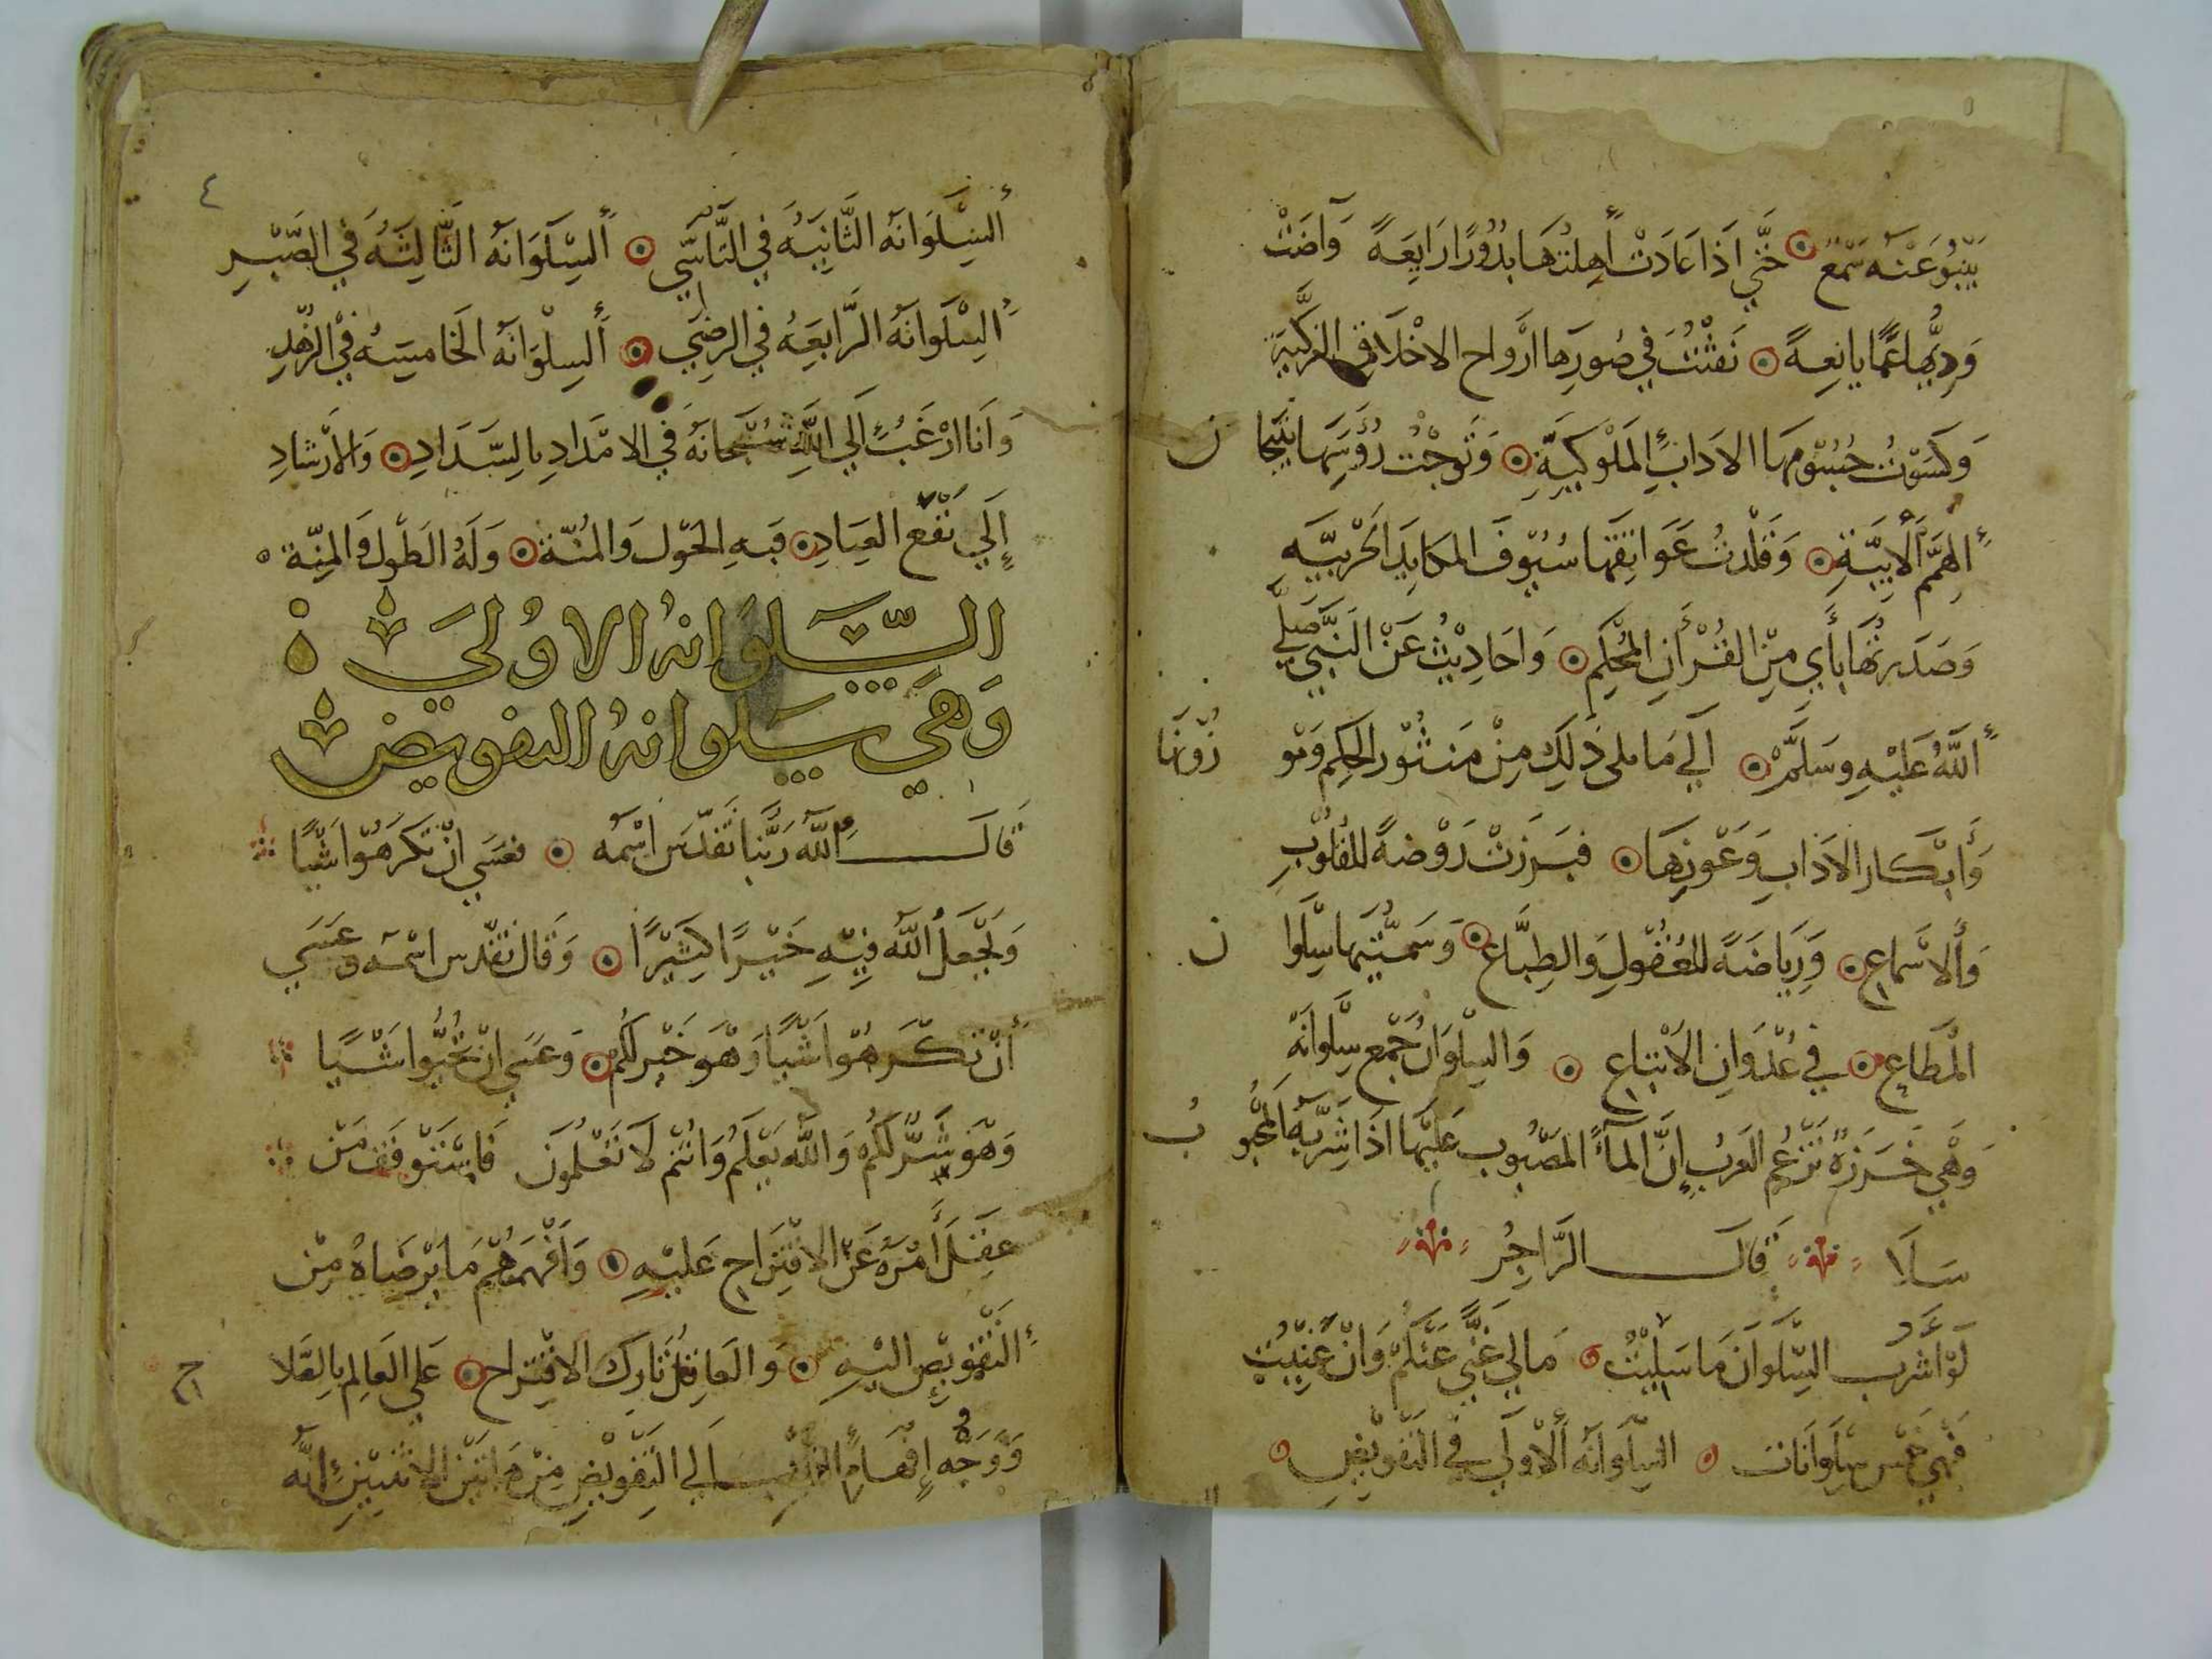 يَنْبُو عَنْهُ سَمْعٌ حَتَّى اذَا عَادَتْ أَهِلَّتُهَا بُدُورًا رَايِعَةً وَآضَتْ
نَفَثْتُ فِي صُوَرِهَا ارْوَاحَ الاخْلَاقِ الزكِيَّةِ
وَكَسَوْتُ جُسُومَهَا الادَابَ المُلُوكِيَّةِ وَتَوَّجْتُ رُؤُسَهَا بتِيجَان
الهِمَمِ الأَبِيَّةِ وَقَلَّدْتُ عَوَاتِقَهَا سُيُوفَ المكَايِدِ الحَرْبِيَّه
وَصَدَّرتُهَا بِأَيٍ مِنَ القُرْأنِ المُحْكَمِ وَاحَادِيْثَ عَنْ النَبِي صَلَّى
اللَّهُ عَلَيْهِ وسَلَّمْ الَى مَا يلى ذَلِكَ مِنْ مَنثُوْر الحِكم وَمَوْزُونهَا
وَأَبْكَار الادَابِ وَعُوْنِهَا فبَرَزَتْ رَوْضَةً للقُلُوْبِ
وَالأَسْمَاعِ وَرِيَاضَةً للعُقُوْلِ وَالطِبَاعِ وَسَمَّيْتهَا سلْوان
المُطَاعِ فِي عُدْوَانِ الاتبَاعِ وَالسلْوَانُ جَمْع سلْوانَةٍ
وَهْيَ خَرَزَةٌ تَزْعُم العَرَبُ انَّ المآءَ المَصْبُوبَ عَلَيْهَا اذَا شَرِبَهُ المُحْبُّ
سَلَا قَالَ الرَّاجِزُ
لَوْ أَشْرَبُ السّلْوَانَ مَا سَلِيْتُ مَا لِي غِنًى عَنْكُمْ وَانْ غَنِيْتُ
فَهْيَ خَمْس سلْوَانَات السلْوَانَهُ الأُوْلَى فِي التَفْوِيْضِ
السلْوَانَه الثَّانِيَهُ فِي التَأسِّي السلْوَانَهُ الثَّالِثَهُ فِي الصَبْرِ
السلْوَانَهُ الرَّابِعَهُ فِي الرضَى السلْوَانَهُ الخَامِسَهُ فِي الزُهْدِ
وَانَا ارْغَبُ الَى اللَّهِ سُبْحَانَهُ فِي الامْدَادِ بالسَّدَادِ وَالارْشَادِ
إلَى نَفْع العِبَادِ فَبِهِ الحَوْل وَالمُنّة وَلَهُ الطَول وَالمِنّة
السّلوانهُ الاولىَ
وَهيَ سلوانهُ التفويض
قَالَ اللَّهُ رَبُّنَا تَقَدَّسَ اسْمُه فعَسَى انْ تَكْرَهُوْا شَيًا
وَيَجْعَلَ اللَّه فِيْهِ خَيْرًا كَثِيْرًا وَقَالَ تقَدس اسْمُه وعَسَى
أنْ تكْرَهُوْا شَيًا وَهْوَ خَيْر لَكُم وَعَسَى انْ تُحِبُّوا شَيًا
وَهْوَ شَرٌّ لَكُمْ وَاللَّه يَعْلَمُ وَانْتُم لَا تَعْلَمُونَ فَاسْتَوْقَفَ مَنْ
عَقَلَ أَمْرَهُ عَنْ الاقْتِرَاحِ عَليْهِ وَافْهَمَهُمْ مَا يَرْضَاهُ مِنْ
التَفْوِيْضِ اليْهِ وَالعَاقِلُ تَارِك الاقْتِرَاحِ عَلَى العَالِم بالصَلاح
وَوَجْهُ إِفْهَامِ الَى التَفْوِيْضِ مِنْ هَاتَيْنِ الاثْنَيْنِ انَّه
٤